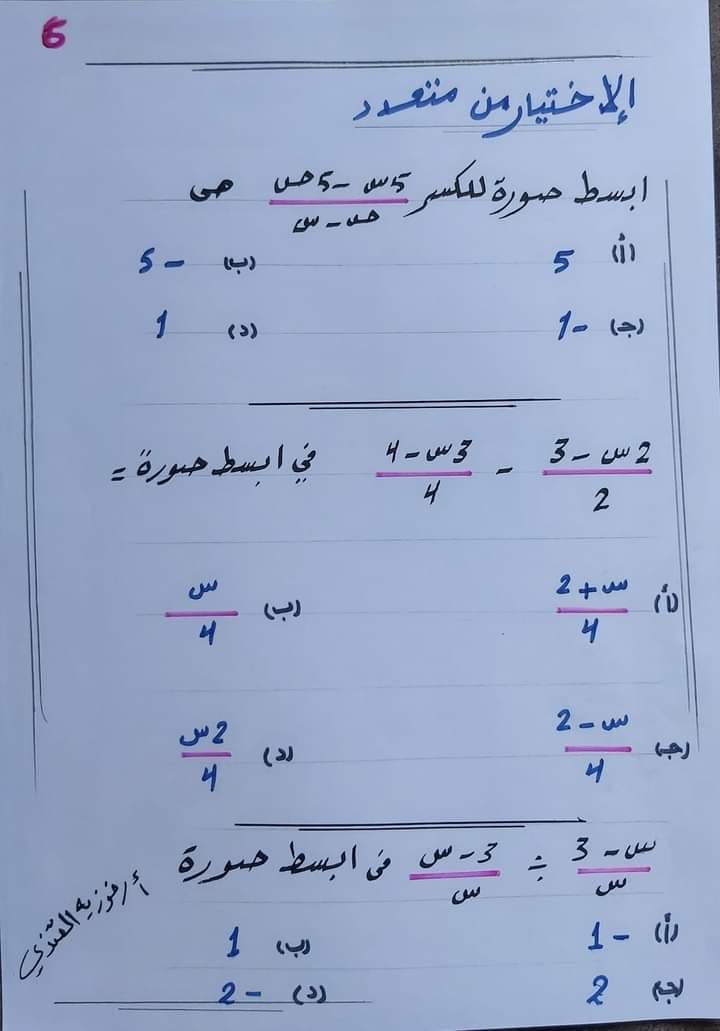 6
الاختيار من متعدد
ابسط صورة للكسر 5س - 5ص / ص - س هي
(أ) 5 (ب) - 5
(ج) - 1 (د) 1
2س - 3 / 2 - 3س - 4 / 4 في ابسط صورة =
(أ) س + 2 / 4 (ب) س / 4
(ج) س - 2 / 4 (د) 2س / 4
س - 3 / س ÷ 3 - س / س في ابسط صورة
(أ) - 1 (ب) 1
(ج) 2 (د) - 2
أ / فوزيه